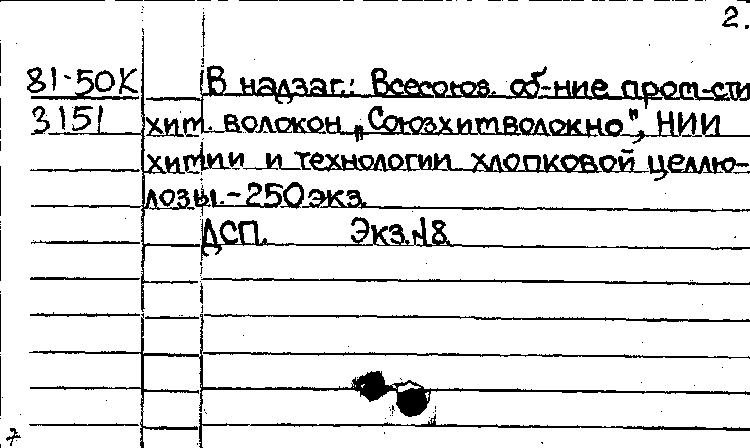 2.
81-50К В надзаг.: Всесоюз. об-ние пром-сти
3151 хим. волокон „Союзхимволокно", НИИ
химии и технологии хлопковой целлю-
лозы.-250экз.
ДСП. Экз.№8.
7